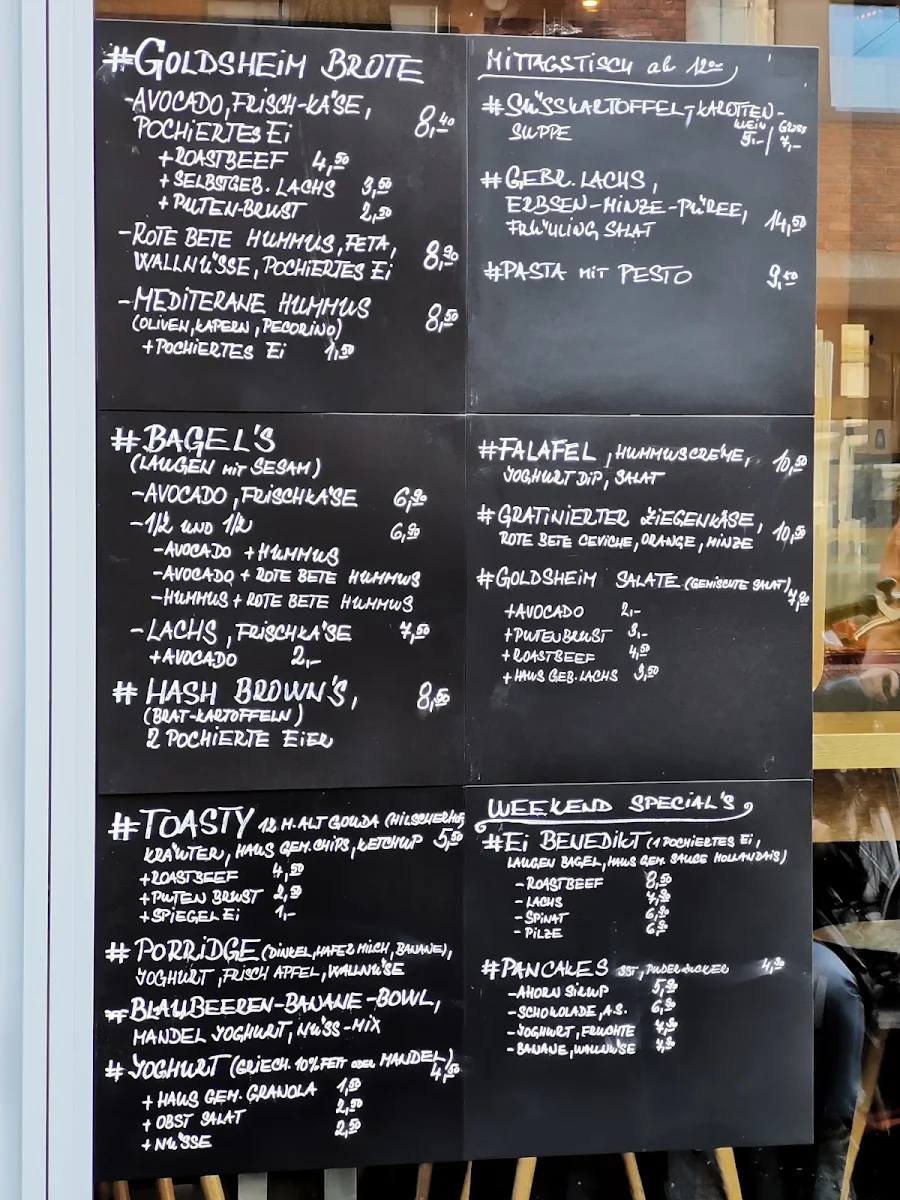 #GOLDSHEIM BROTE
-AVOCADO, FRISCH-KÄSE,
POCHIERTES Ei 8,40
+ROASTBEEF 4,50
+SELBSTGEB. LACHS 3,50
+PUTEN-BRUST 2,50
-ROTE BETE HUMMUS, FETA,
WALLNÜSSE, POCHIERTES Ei 8,90
-MEDITERANE HUMMUS 8,50
(OLIVEN, KAPERN, PECORINO)
+POCHIERTES Ei 1,50
#BAGEL'S
(LAUGEN MIT SESAM)
-AVOCADO, FRISCHKÄSE 6,90
-1/2 UND 1/2 6,90
-AVOCADO + HUMMUS
-AVOCADO + ROTE BETE HUMMUS
-HUMMUS + ROTE BETE HUMMUS
-LACHS, FRISCHKÄSE 7,50
+AVOCADO 2,-
# HASH BROWN'S, 8,50
(BRAT-KARTOFFELN)
2 POCHIERTE EIER
#TOASTY 12 M. ALT GOUDA
KRÄUTER, HAUS GEM. CHIPS, KETCHUP 5,50
+ROASTBEEF 4,50
+PUTEN BRUST 2,50
+SPIEGEL Ei 1,-
# PORRIDGE (DINKEL, HAFER MILCH, BANANE),
JOGHURT, FRISCH APFEL, WALLNÜSSE
#BLAUBEEREN-BANANE-BOWL,
MANDEL JOGHURT, NÜSS-MIX
# JOGHURT (GRIECH. 10% FETT ODER MANDEL)
+ HAUS GEM. GRANOLA 1,50
+ OBST SALAT 2,50
+ NÜSSE 2,50
MITTAGSTISCH ab 12
#SÜSSKARTOFFEL-, KAROTTEN-
SUPPE KLEIN 5,- / GROSS 7,-
#GEBR. LACHS,
ERBSEN-MINZE-PÜREE,
FRÜHLING SALAT 14,50
#PASTA MIT PESTO
#FALAFEL, HUMMUSCREME, 10,50
JOGHURT DIP, SALAT
#GRATINIERTER ZIEGENKÄSE, 10,50
ROTE BETE CEVICHE, ORANGE, MINZE
#GOLDSHEIM SALATE (GEMISCHTE SALAT) 7,90
+AVOCADO 2,-
+PUTENBRUST 3,-
+ROASTBEEF 4,50
+HAUS GEB. LACHS 3,50
WEEKEND SPECIAL'S
#Ei BENEDIKT (1 POCHIERTES Ei,
LAUGEN BAGEL, HAUS GEM. SAUCE HOLLANDAIS)
-ROASTBEEF 8,50
-LACHS 7,90
-SPINAT 6,90
-PILZE
#PANCAKES 3ST, PUDERZUCKER 4,90
-AHORN SIRUP 5,90
-SCHOKOLADE, A.S. 6,90
-JOGHURT, FRÜCHTE 7,90
-BANANE, WALLNÜSSE 7,90